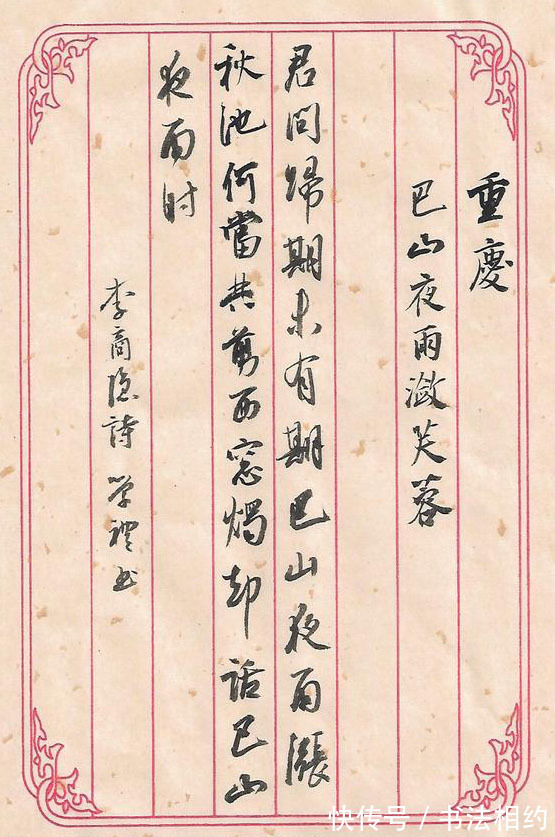 重慶
巴山夜雨潋芙蓉
君问歸期未有期巴山夜雨漲
秋池何當共剪西窓燭却話巴山
夜雨时
李商隐詩 学礼书
快传号 / 书法相约